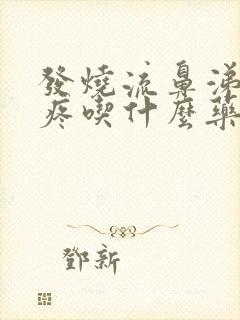 發燒流鼻涕
疼喫什麼藥
鄧新